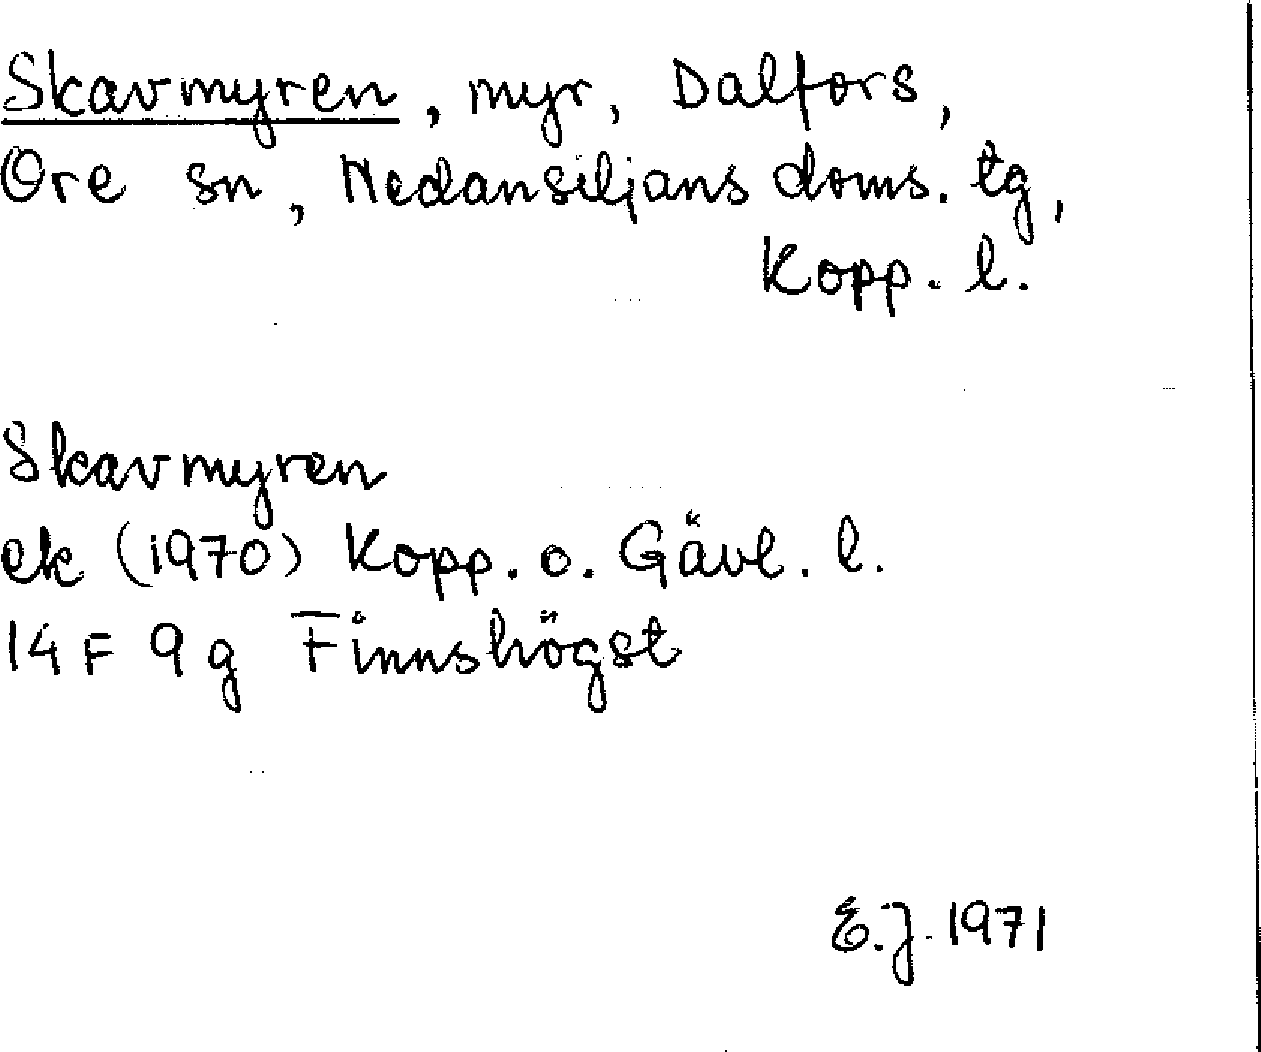 Skavmyren, myr, Dalfors,
Ore sn, Nedansiljans doms. tg,
Kopp. l.
Skavmyren
ek (1970) Kopp. o. Gävl. l.
14 F 9 g Finnshögst
E.J. 1971